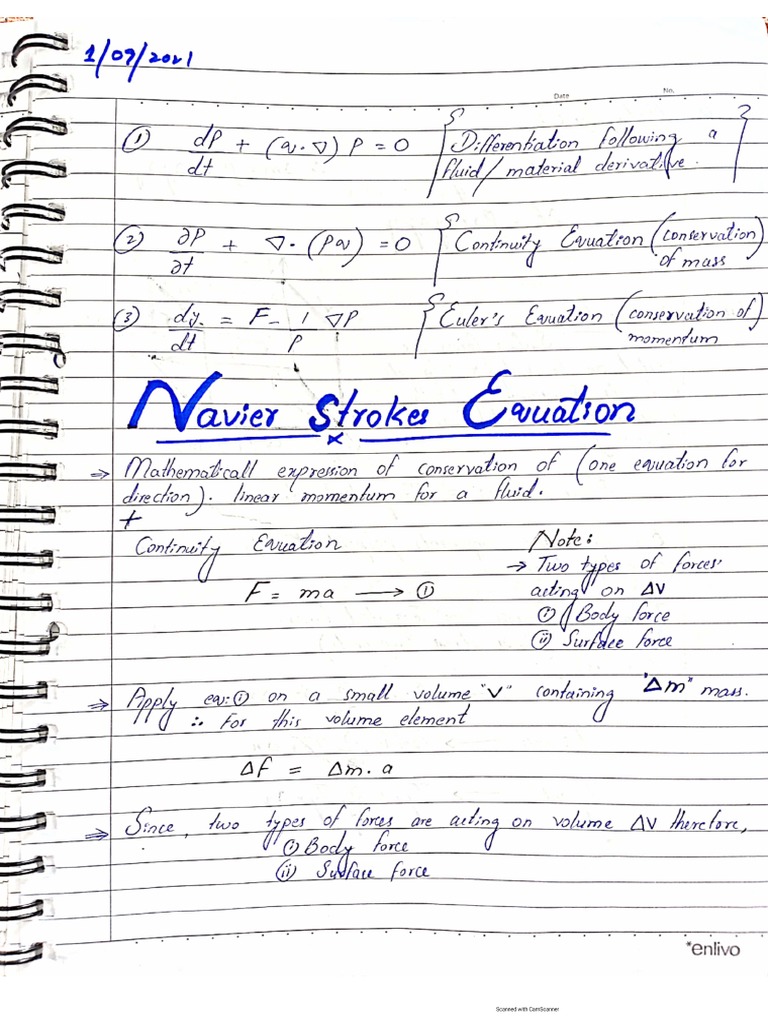 1/09/2021
Date No.
① dP/dt + (q·∇) P = 0 { Differentiation following a fluid/material derivative. }
② ∂P/∂t + ∇·(Pq) = 0 { Continuity Equation (conservation of mass)
③ dq/dt = F - 1/P ∇P { Euler's Equation (conservation of momentum)
Navier Strokes Equation
⇒ Mathematicall expression of conservation of (one equation for
direction). linear momentum for a fluid.
+
Continuity Equation
F = ma ⟶ ①
Note:
→ Two types of forces
acting on ΔV
ⓘ Body force
ⓘⓘ Surface force
⇒ Apply eq:ⓘ on a small volume "V" containing "Δm" mass.
∴ For this volume element
ΔF = Δm. a
⇒ Since, two types of forces are acting on volume ΔV therefore,
ⓘ Body force
ⓘⓘ Surface force
*enlivo
Scanned with CamScanner